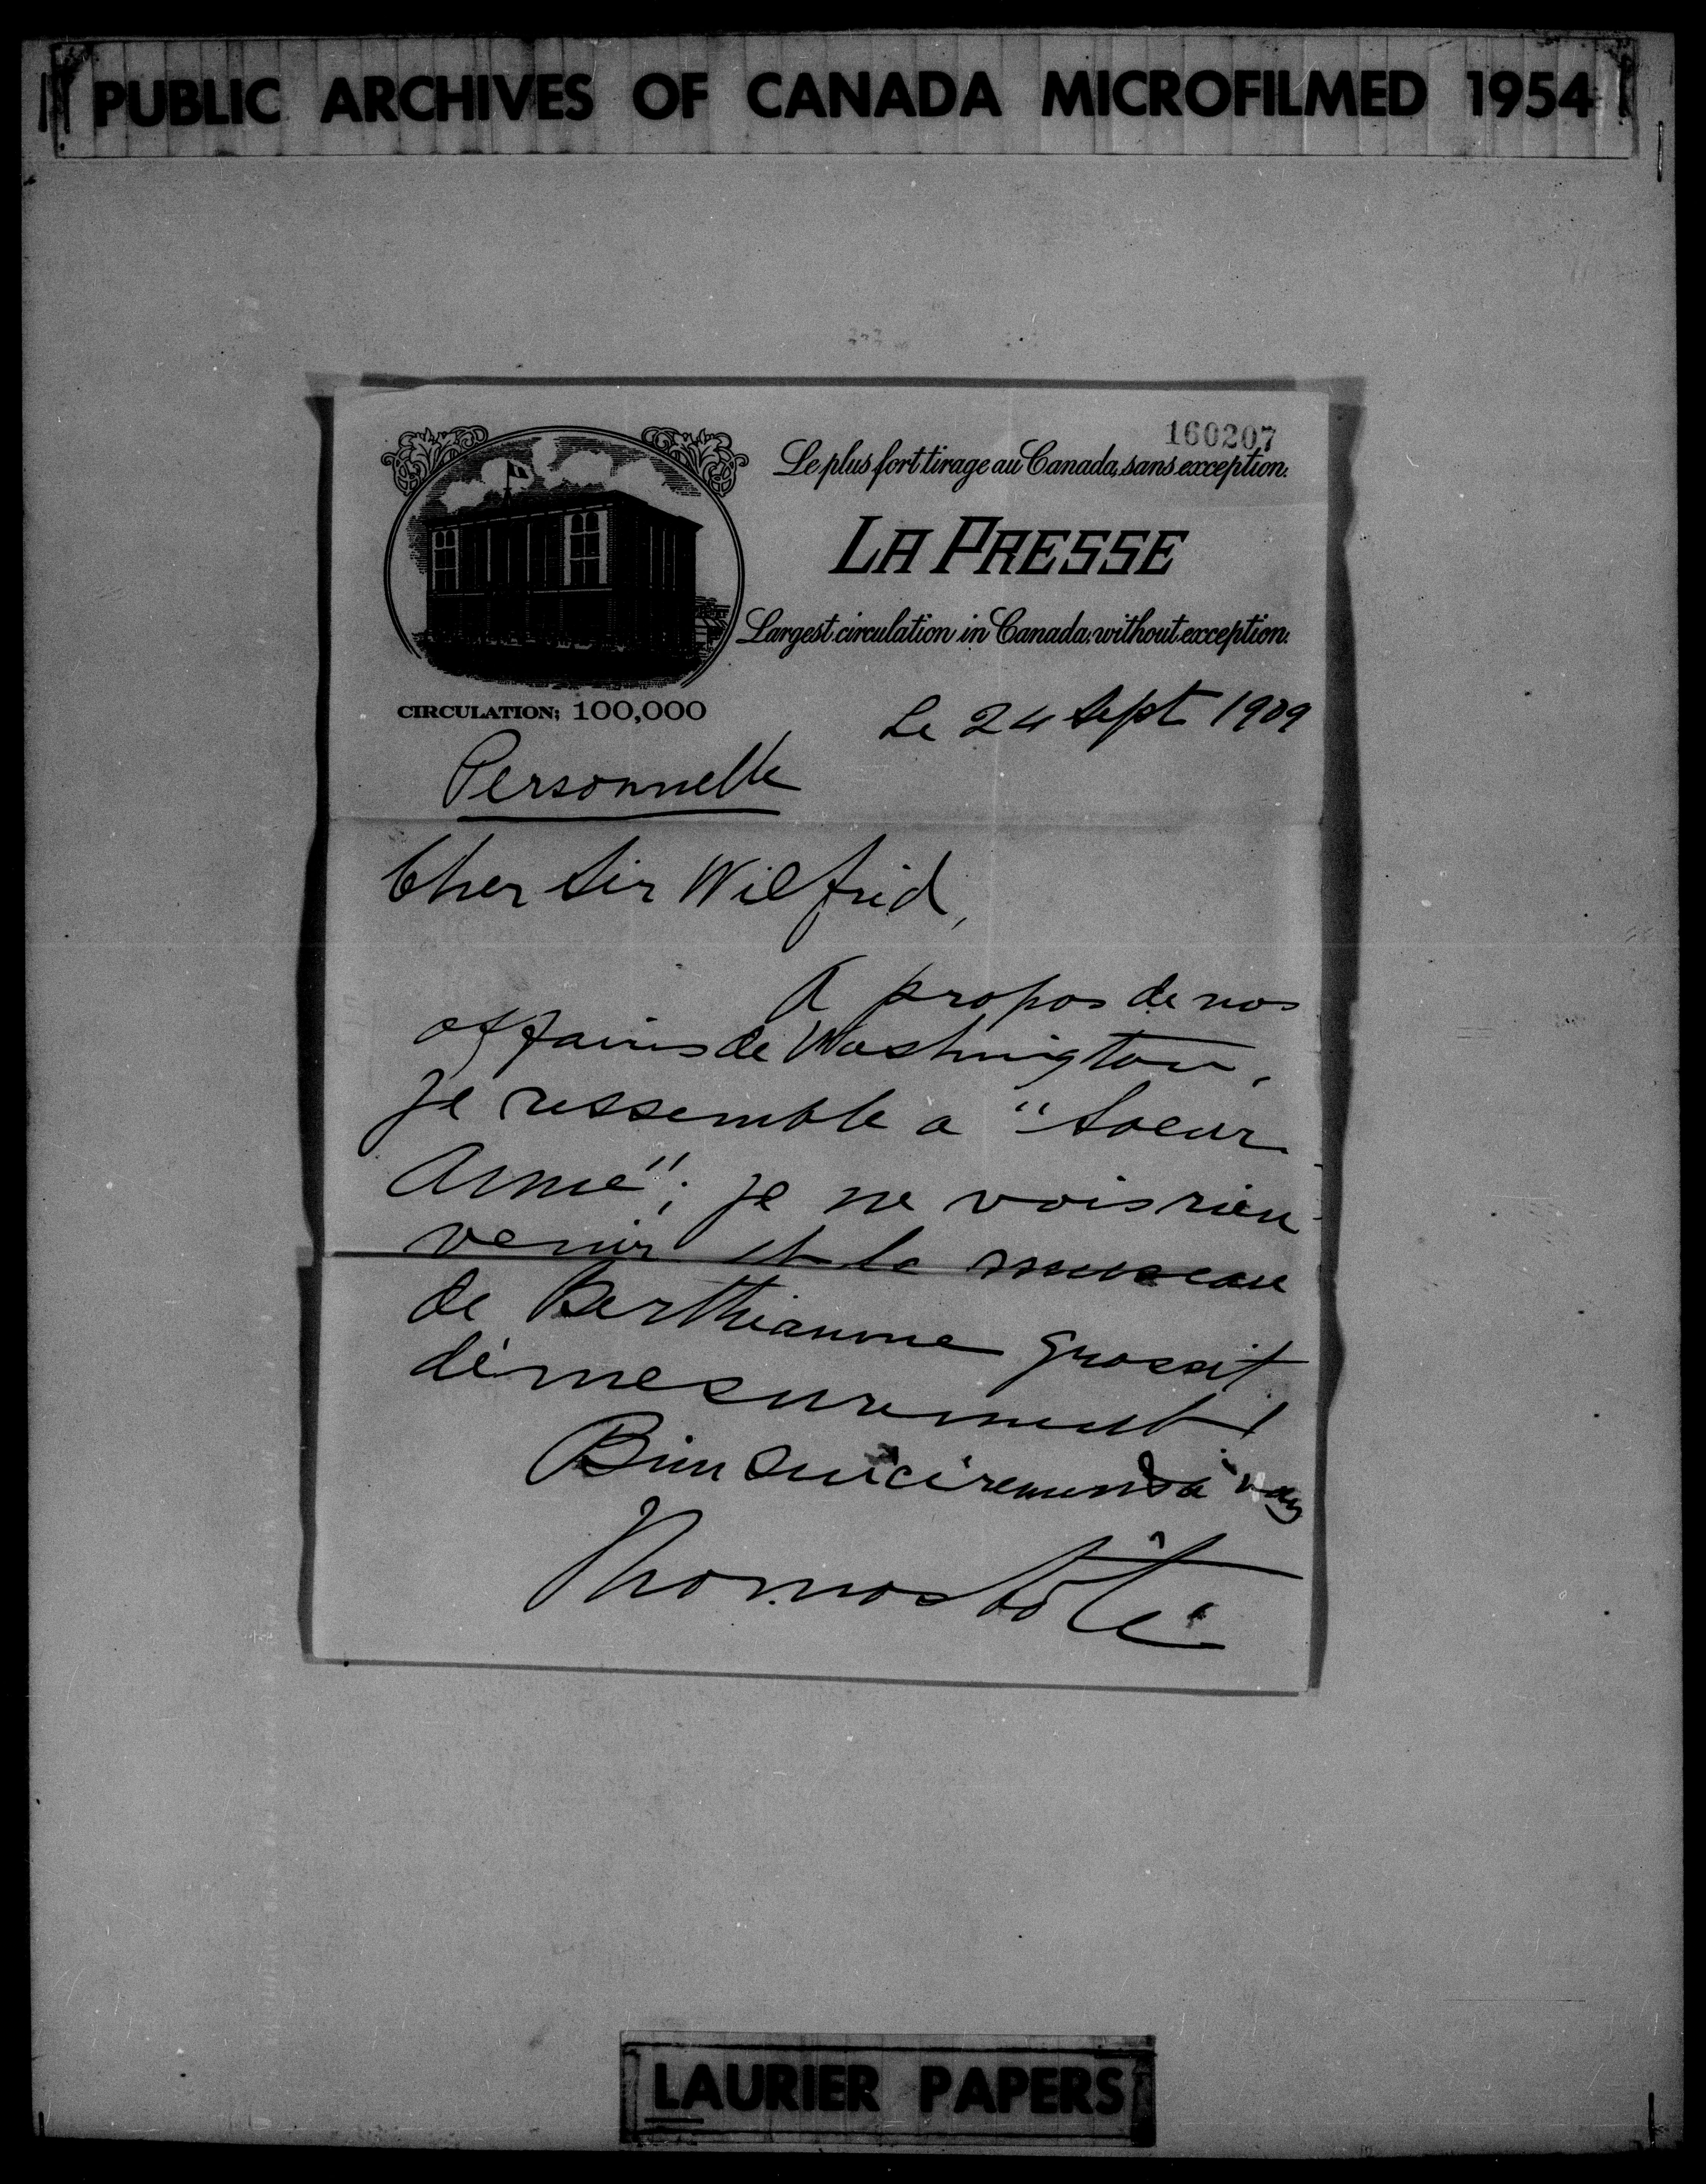 PUBLIC ARCHIVES OF CANADA MICROFILMED 1954
160207
Le plus fort tirage au Canada, sans exception.
LA PRESSE
Largest circulation in Canada, without exception.
CIRCULATION; 100,000
Le 24 Sept 1909
Personnelle
Cher Sir Wilfrid,
A propos de nos
affaires de Washington,
je ressemble a "Soeur
Anne"; je ne vois rien
venir et le museau
de Berthiaume grossit
démesurement!
Bien sincèrement à vous
Thomas Côté
LAURIER PAPERS